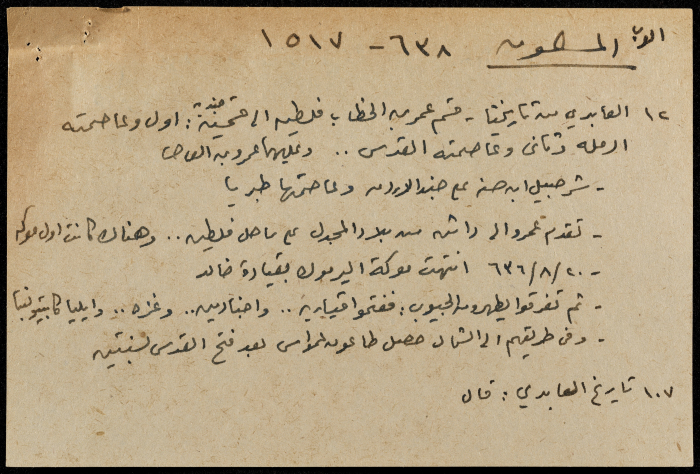 العرب المسلمون ٦٣٨ - ١٥١٧
١٢ العابدي من تاريخنا - قسم عمر بن الخطاب فلسطين الى قسمين جند ية : اول وعاصمته
الرمله وثاني وعاصمته القدس .. وعليها عمرو بن العاص
- شرحبيل ابن حسنه على جند الاردن وعاصمتها طبريا
- تقدم عمرو الى داثن من بلاد المجدل على ساحل فلسطين .. وهناك كانت اول معركه
- ٢٠/٨/٦٣٦ انتهت معركة اليرموك بقيادة خالد
- ثم تفرقوا يطهرون الجيوب : ففتحوا قيساريه .. واجنادين .. وغزه .. وايليا كابتيولينا
- وفي طريقهم الى الشمال حصل طاعون عمواس بعد فتح القدس بسنتين
١٠٧ تاريخ العابدي : قال